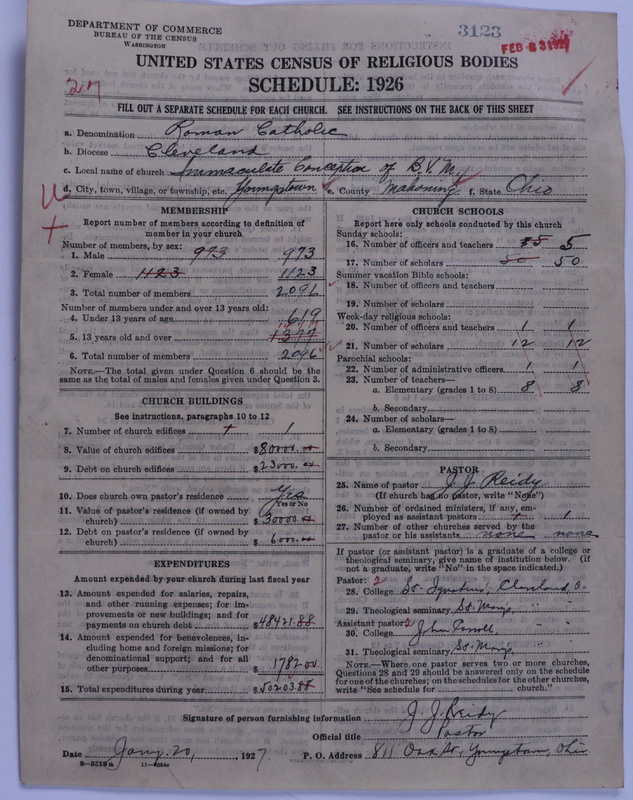 DEPARTMENT OF COMMERCE
BUREAU OF THE CENSUS
WASHINGTON
3123
FEB 23 1927
UNITED STATES CENSUS OF RELIGIOUS BODIES
SCHEDULE: 1926
27
FILL OUT A SEPARATE SCHEDULE FOR EACH CHURCH. SEE INSTRUCTIONS ON THE BACK OF THIS SHEET
a. Denomination Roman Catholic
b. Diocese Cleveland
c. Local name of church Immaculate Conception of B.V.M.
d. City, town, village, or township, etc. Youngstown e. County Mahoning f. State Ohio
MEMBERSHIP
Report number of members according to definition of
member in your church
Number of members, by sex:
1. Male 973 973
2. Female 1123 1123
3. Total number of members 2096
Number of members under and over 13 years old:
4. Under 13 years of age 619
5. 13 years old and over 1377
6. Total number of members 2096
NOTE.—The total given under Question 6 should be the
same as the total of males and females given under Question 3.
CHURCH BUILDINGS
See instructions, paragraphs 10 to 12
7. Number of church edifices 1
8. Value of church edifices $80000.00
9. Debt on church edifices $23000.00
10. Does church own pastor's residence Yes
Yes or No
11. Value of pastor's residence (if owned by
church) $30000.00
12. Debt on pastor's residence (if owned by
church) $6000.00
EXPENDITURES
Amount expended by your church during last fiscal year
13. Amount expended for salaries, repairs,
and other running expenses; for im-
provements or new buildings; and for
payments on church debt $48421.88
14. Amount expended for benevolences, in-
cluding home and foreign missions; for
denominational support; and for all
other purposes $1782.00
15. Total expenditures during year $50203.88
CHURCH SCHOOLS
Report here only schools conducted by this church
Sunday schools:
16. Number of officers and teachers 5 5
17. Number of scholars 50 50
Summer vacation Bible schools:
18. Number of officers and teachers
19. Number of scholars
Week-day religious schools:
20. Number of officers and teachers 1 1
21. Number of scholars 12 12
Parochial schools:
22. Number of administrative officers 1 1
23. Number of teachers—
a. Elementary (grades 1 to 8) 8 8
b. Secondary
24. Number of scholars—
a. Elementary (grades 1 to 8)
b. Secondary
PASTOR
25. Name of pastor J. J. Reidy
(If church has no pastor, write "None")
26. Number of ordained ministers, if any, em-
ployed as assistant pastors 1
27. Number of other churches served by the
pastor or his assistants none none
If pastor (or assistant pastor) is a graduate of a college or
theological seminary, give name of institution below. (If
not a graduate, write "No" in the space indicated.)
Pastor: 2
28. College St. Ignatius, Cleveland, O.
29. Theological seminary St. Marys, " "
Assistant pastor: 2
30. College John Carroll " "
31. Theological seminary St. Marys, " "
NOTE.—Where one pastor serves two or more churches,
Questions 28 and 29 should be answered only on the schedule
for one of the churches; on the schedules for the other churches,
write "See schedule for church."
Signature of person furnishing information J. J. Reidy
Official title Pastor
Date Jany. 20, 1927. P. O. Address 811 Oak St, Youngstown, Ohio
8—5518a